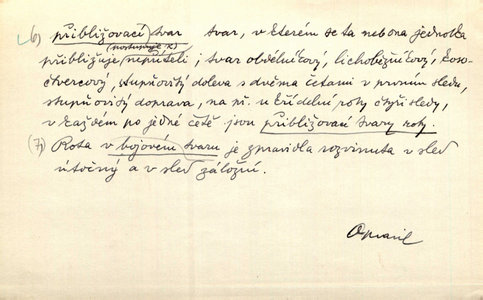 6) přibližovací tvar tvar, v kterém se ta nebona jednotka
(postupuje k)
přibližuje nepříteli; tvar obdélníkový, lichoběžníkový, koso-
čtvercový, stupňovitý doleva s dvěma četami v prvním sledu,
stupňovitý doprava, na př. u křídelní roty čtyři sledy,
v každém po jedné četě jsou přibližovací tvary roty.
(7) Rota v bojovém tvaru je zpravidla rozvinuta v sled
útočný a v sled záložní.
Opravil